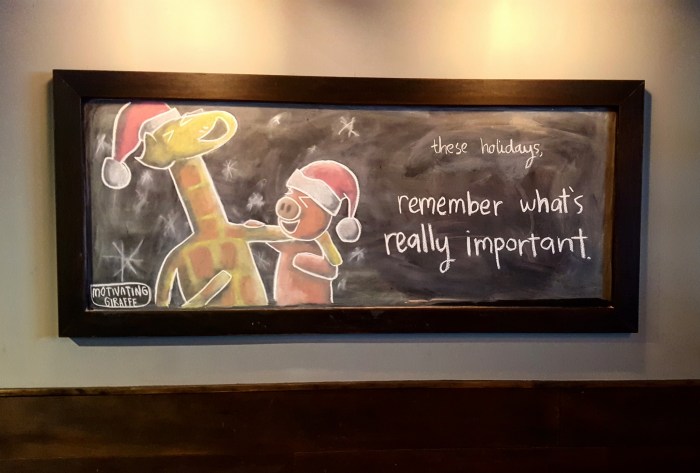 these holidays,
remember what's
really important.
MOTIVATING
GIRAFFE